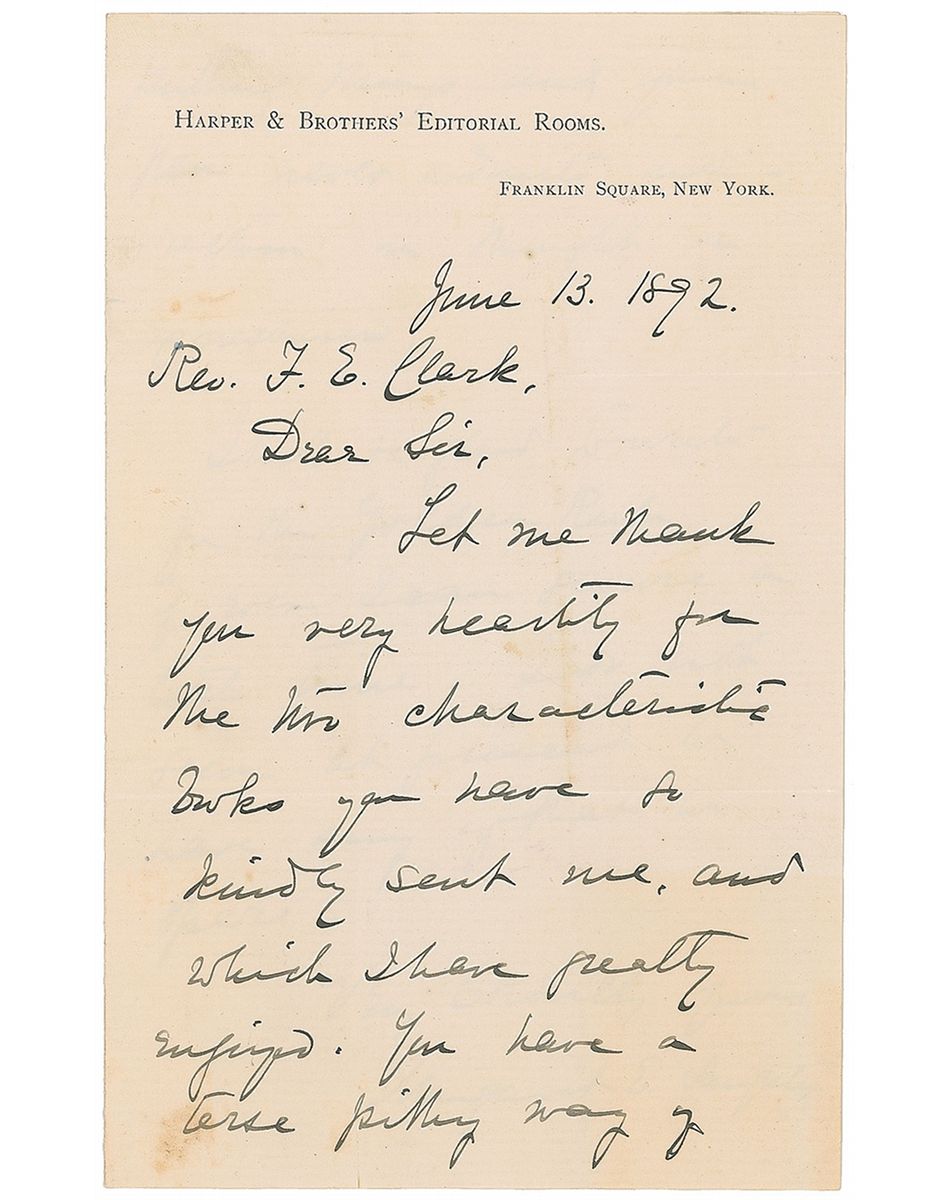 HARPER & BROTHERS' EDITORIAL ROOMS.
FRANKLIN SQUARE, NEW YORK.
June 13. 1892.
Rev. F. E. Clark,
Dear Sir,
Let me thank
you very heartily for
the two characteristic
books you have so
kindly sent me, and
which I have greatly
enjoyed. You have a
terse pithy way of